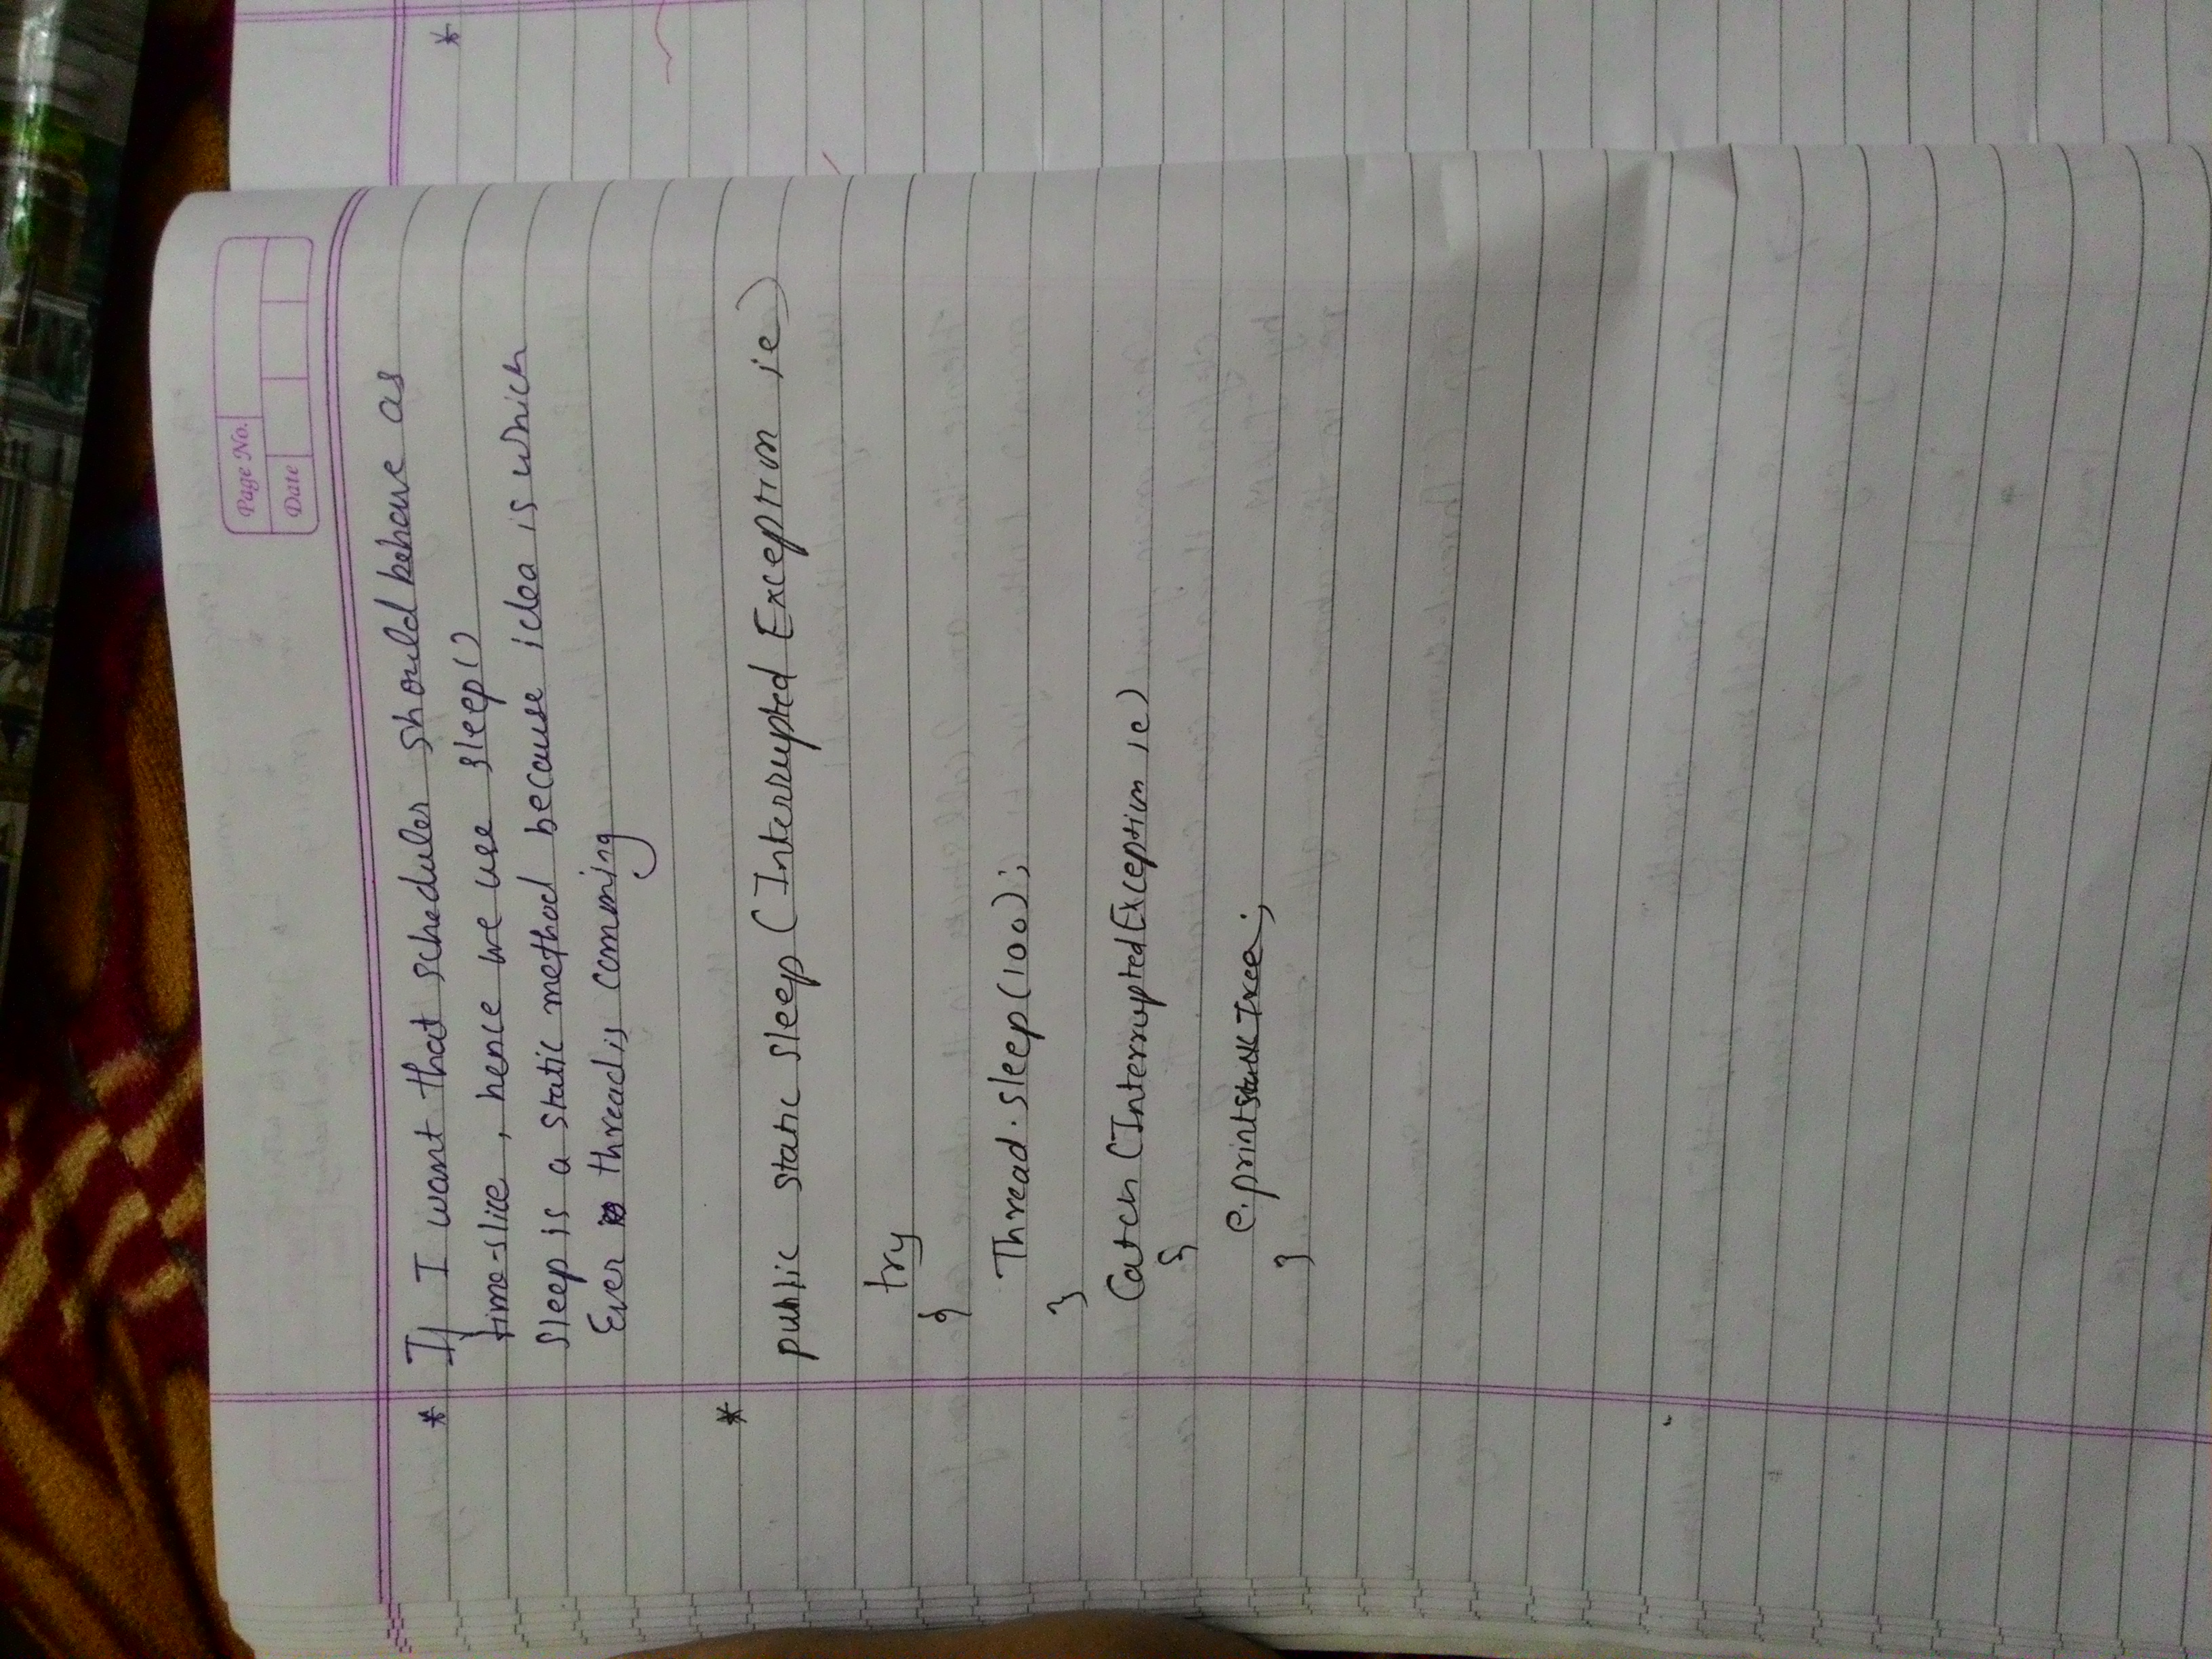 Page No.
Date
* If I want that scheduler should behave as
time-slice , hence we use sleep()
Sleep is a static method because idea is which
Ever thread is comming
*
public static sleep (Interrupted Exception ie)
try
{
Thread.sleep(100);
}
Catch (InterruptedException ie)
{
e.printstack Trea;
}
*